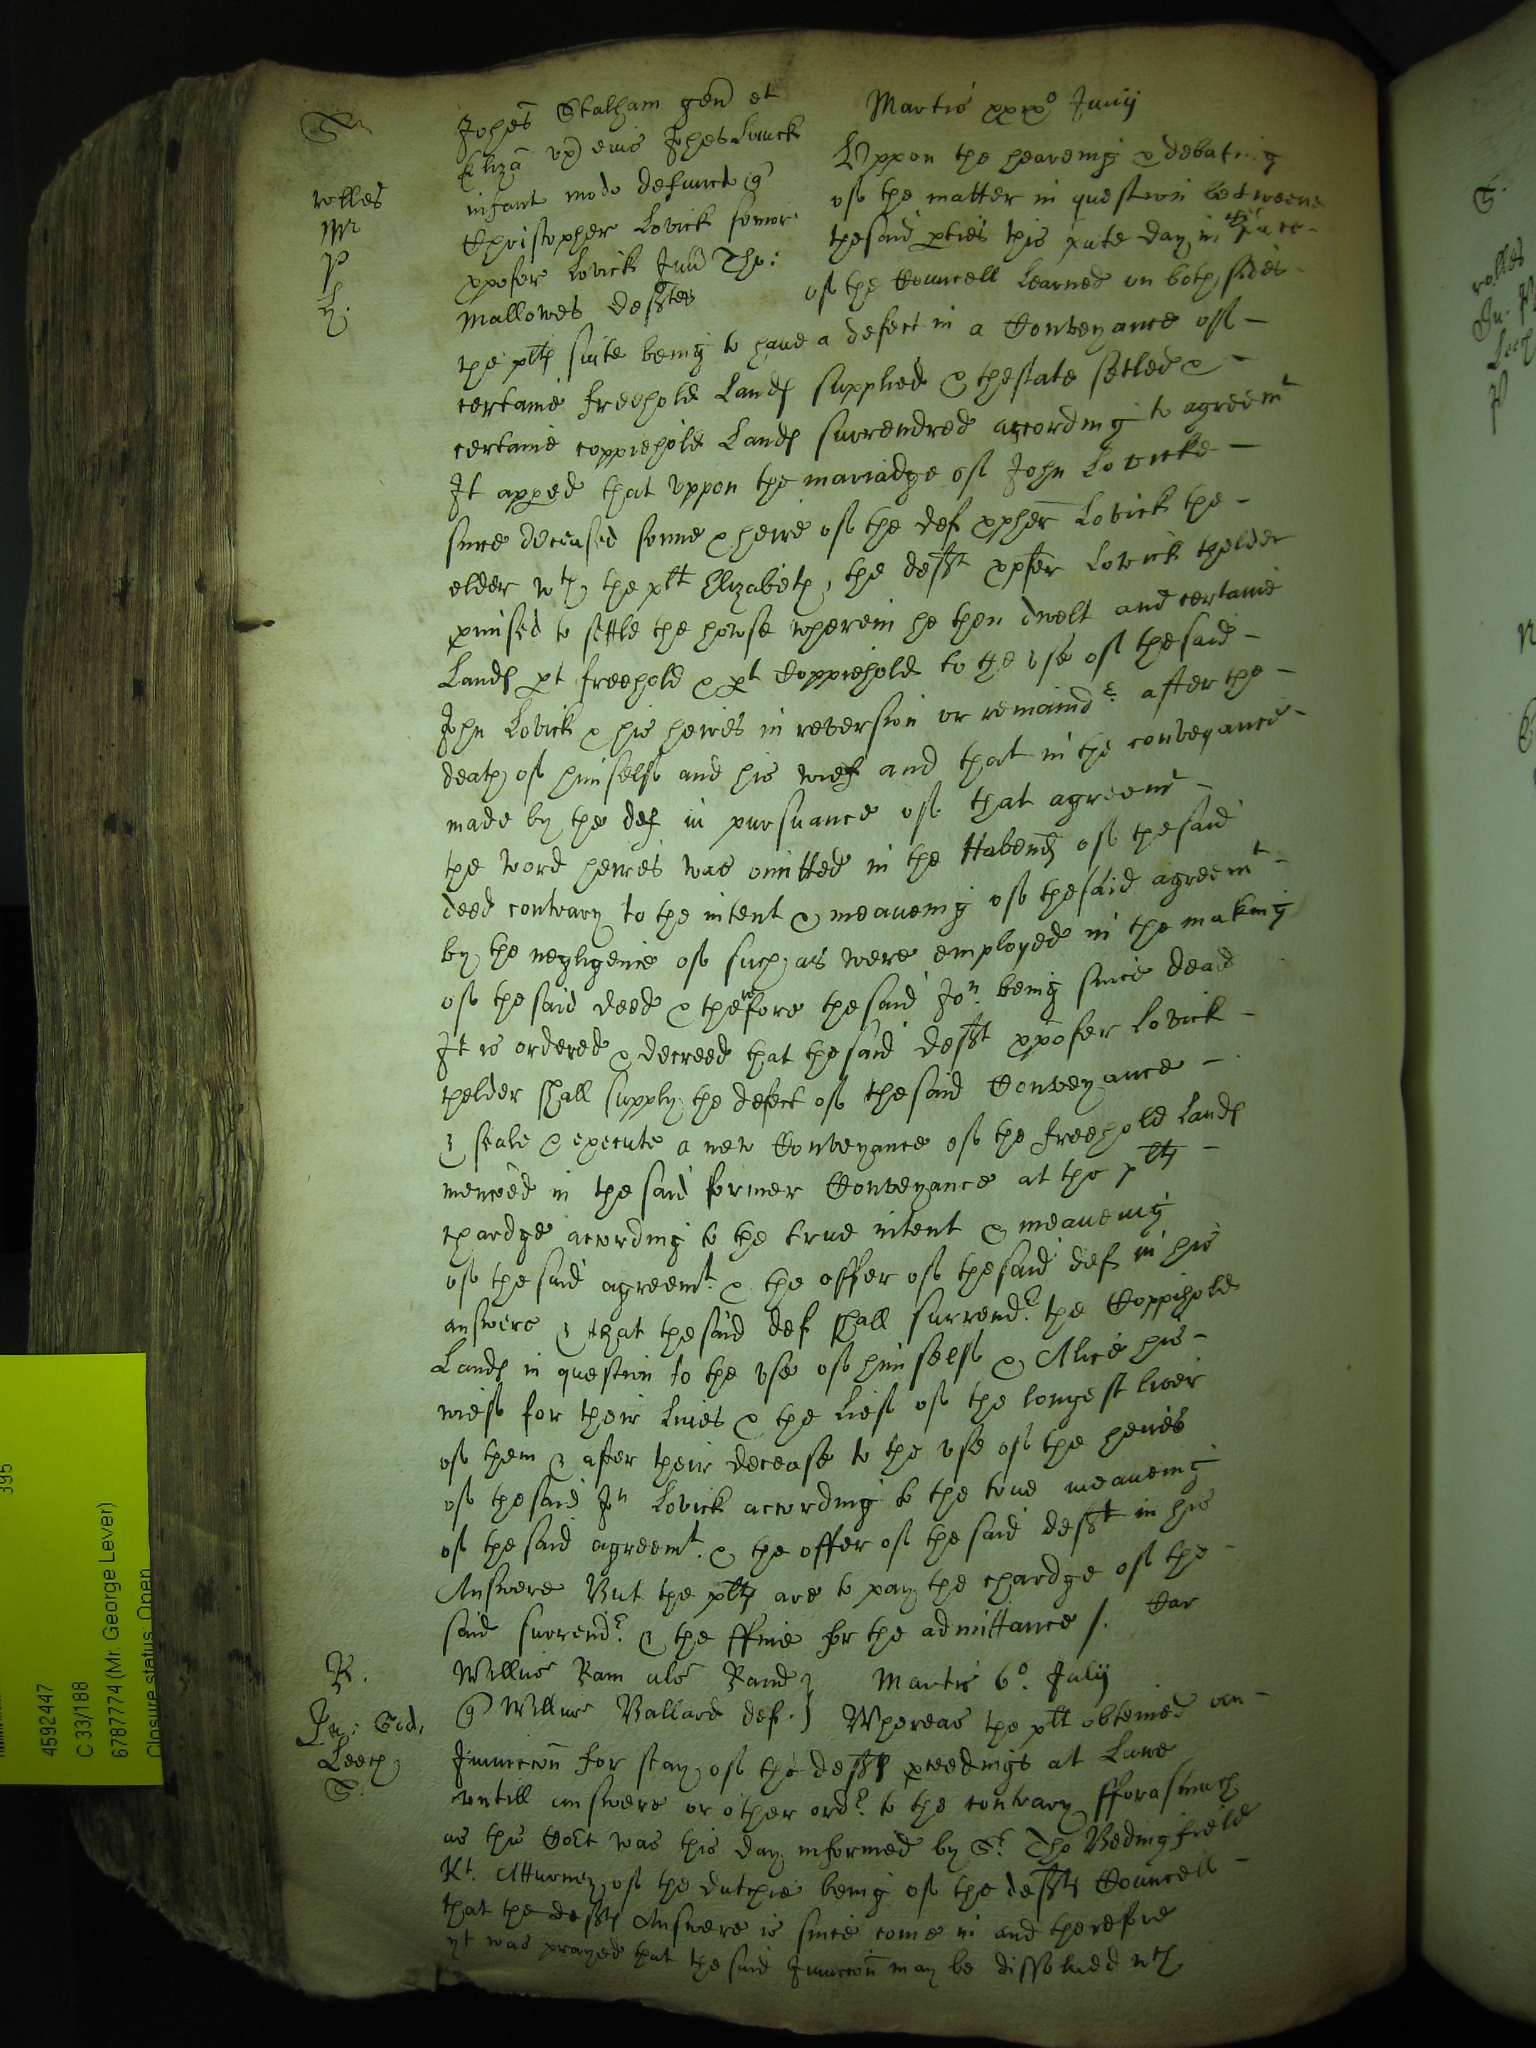 S
Johes Stalham gen et
Eliza ux eius Johes Lovick
infant modo defunct q
Christopher Lovick senior
xpofer Lovick Jun Tho:
Mallowes defftes
rolles
Mr
P
h.
Martis xxixo Junij
Uppon the heareing & debateing
of the matter in question betweene
the said pties this pnte day in the pnce
of the Councell Learned on both sides
the pltfs suite being to have a defect in a Conveyance off
certaine freehold Lands supplied & thestate setled &
certaine coppiehold Lands surrendred according to agreemt
It apped that uppon the mariadge off John Lovicke
since deceased sonne & heire off the def xpher Lovick the
elder wth the plt Elizabeth, the defft xpofer Lovick thelder
pmised to settle the howse wherein he then dwelt and certaine
Lands pt freehold & pt Coppiehold to the use off the said
John Lovick & his heires in reversion or remaindr after the
death off himselff and his wief and that in the conveyance
made by the def in pursuance off that agreemt
the word heires was omitted in the Habend off the said
deed contrary to the intent & meaneing off the said agreemt
by the negligence off such as were employed in the making
off the said deed & therefore the said Jon. being since dead
It is ordered & decreed that the said defft xpofer Lovick
thelder shall supply the defect off the said Conveyance
& seale & execute a new Conveyance off the freehold Lands
mencoed in the said former Conveyance at the pltfs
chardge according to the true intent & meaneing
off the said agreemt. & the offer off the said def in his
answere & that the said def shall surrendr. the Coppihold
Lands in question to the use off himselff & Alice his
wieff for their Lives & the Lieff off the longest liver
off them & after their decease to the use off the heires
off the said Jn Lovick according to the true meaneing
off the said agreemt. & the offer off the said defft in his
Answere But the pltfs are to pay the chardge off the
said surrendr. & the ffine for the admittance /. Car
R.
Willus Ram als Rand
q Willus Ballard def.
Martis 6o. July
Jn: God.
Leech
S.
Whereas the plt obteined an
Iniunccon for stay off the deffts pceedings at Lawe
untill answere or other ordr. to the contrary fforasmuch
as this Cort was this day informed by Sr. Tho Bedingfield
Kt. Atturney off the dutchie being off the deffts Councell
that the deffts Answere is since come in and therefore
yt was prayed that the said Iniunccon may be dissolved wch
S.
rolles
Jn. P
Leech
P
395
4592447
C 33/188
6787774 (Mr. George Lever)
Closure status: Open